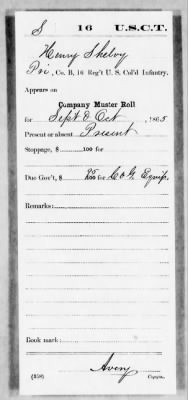 S 16 U.S.C.T.
Henry Shelvy
Pvt, Co. B, 16 Reg't U. S. Col'd Infantry.
Appears on
Company Muster Roll
for Sept & Oct, 1865
Present or absent Present
Stoppage, $ 100 for
Due Gov't, $ 95/100 for C & G Equip.
Remarks:
Book mark:
Avery
(358) Copyist.